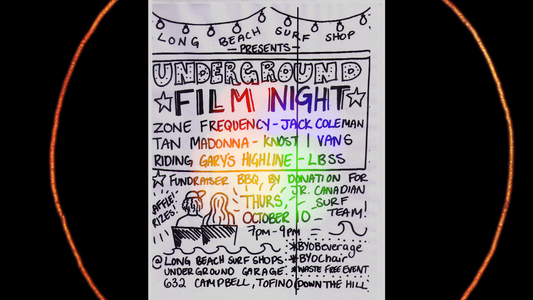 LONG BEACH SURF SHOP
- PRESENTS -
UNDERGROUND
FILM NIGHT
ZONE FREQUENCY - JACK COLEMAN
TAN MADONNA - KNOST | VANS
RIDING GARY'S HIGHLINE - LBSS
FUNDRAISER BBQ BY DONATION FOR
JR. CANADIAN
SURF
TEAM!
RAFFLE!
PRIZES!
THURS,
OCTOBER 10
7PM - 9PM
*BYOBEVERAGE
*BYOCHAIR
*WASTE FREE EVENT
@ LONG BEACH SURF SHOPS
UNDERGROUND GARAGE
632 CAMPBELL, TOFINO DOWN THE HILL